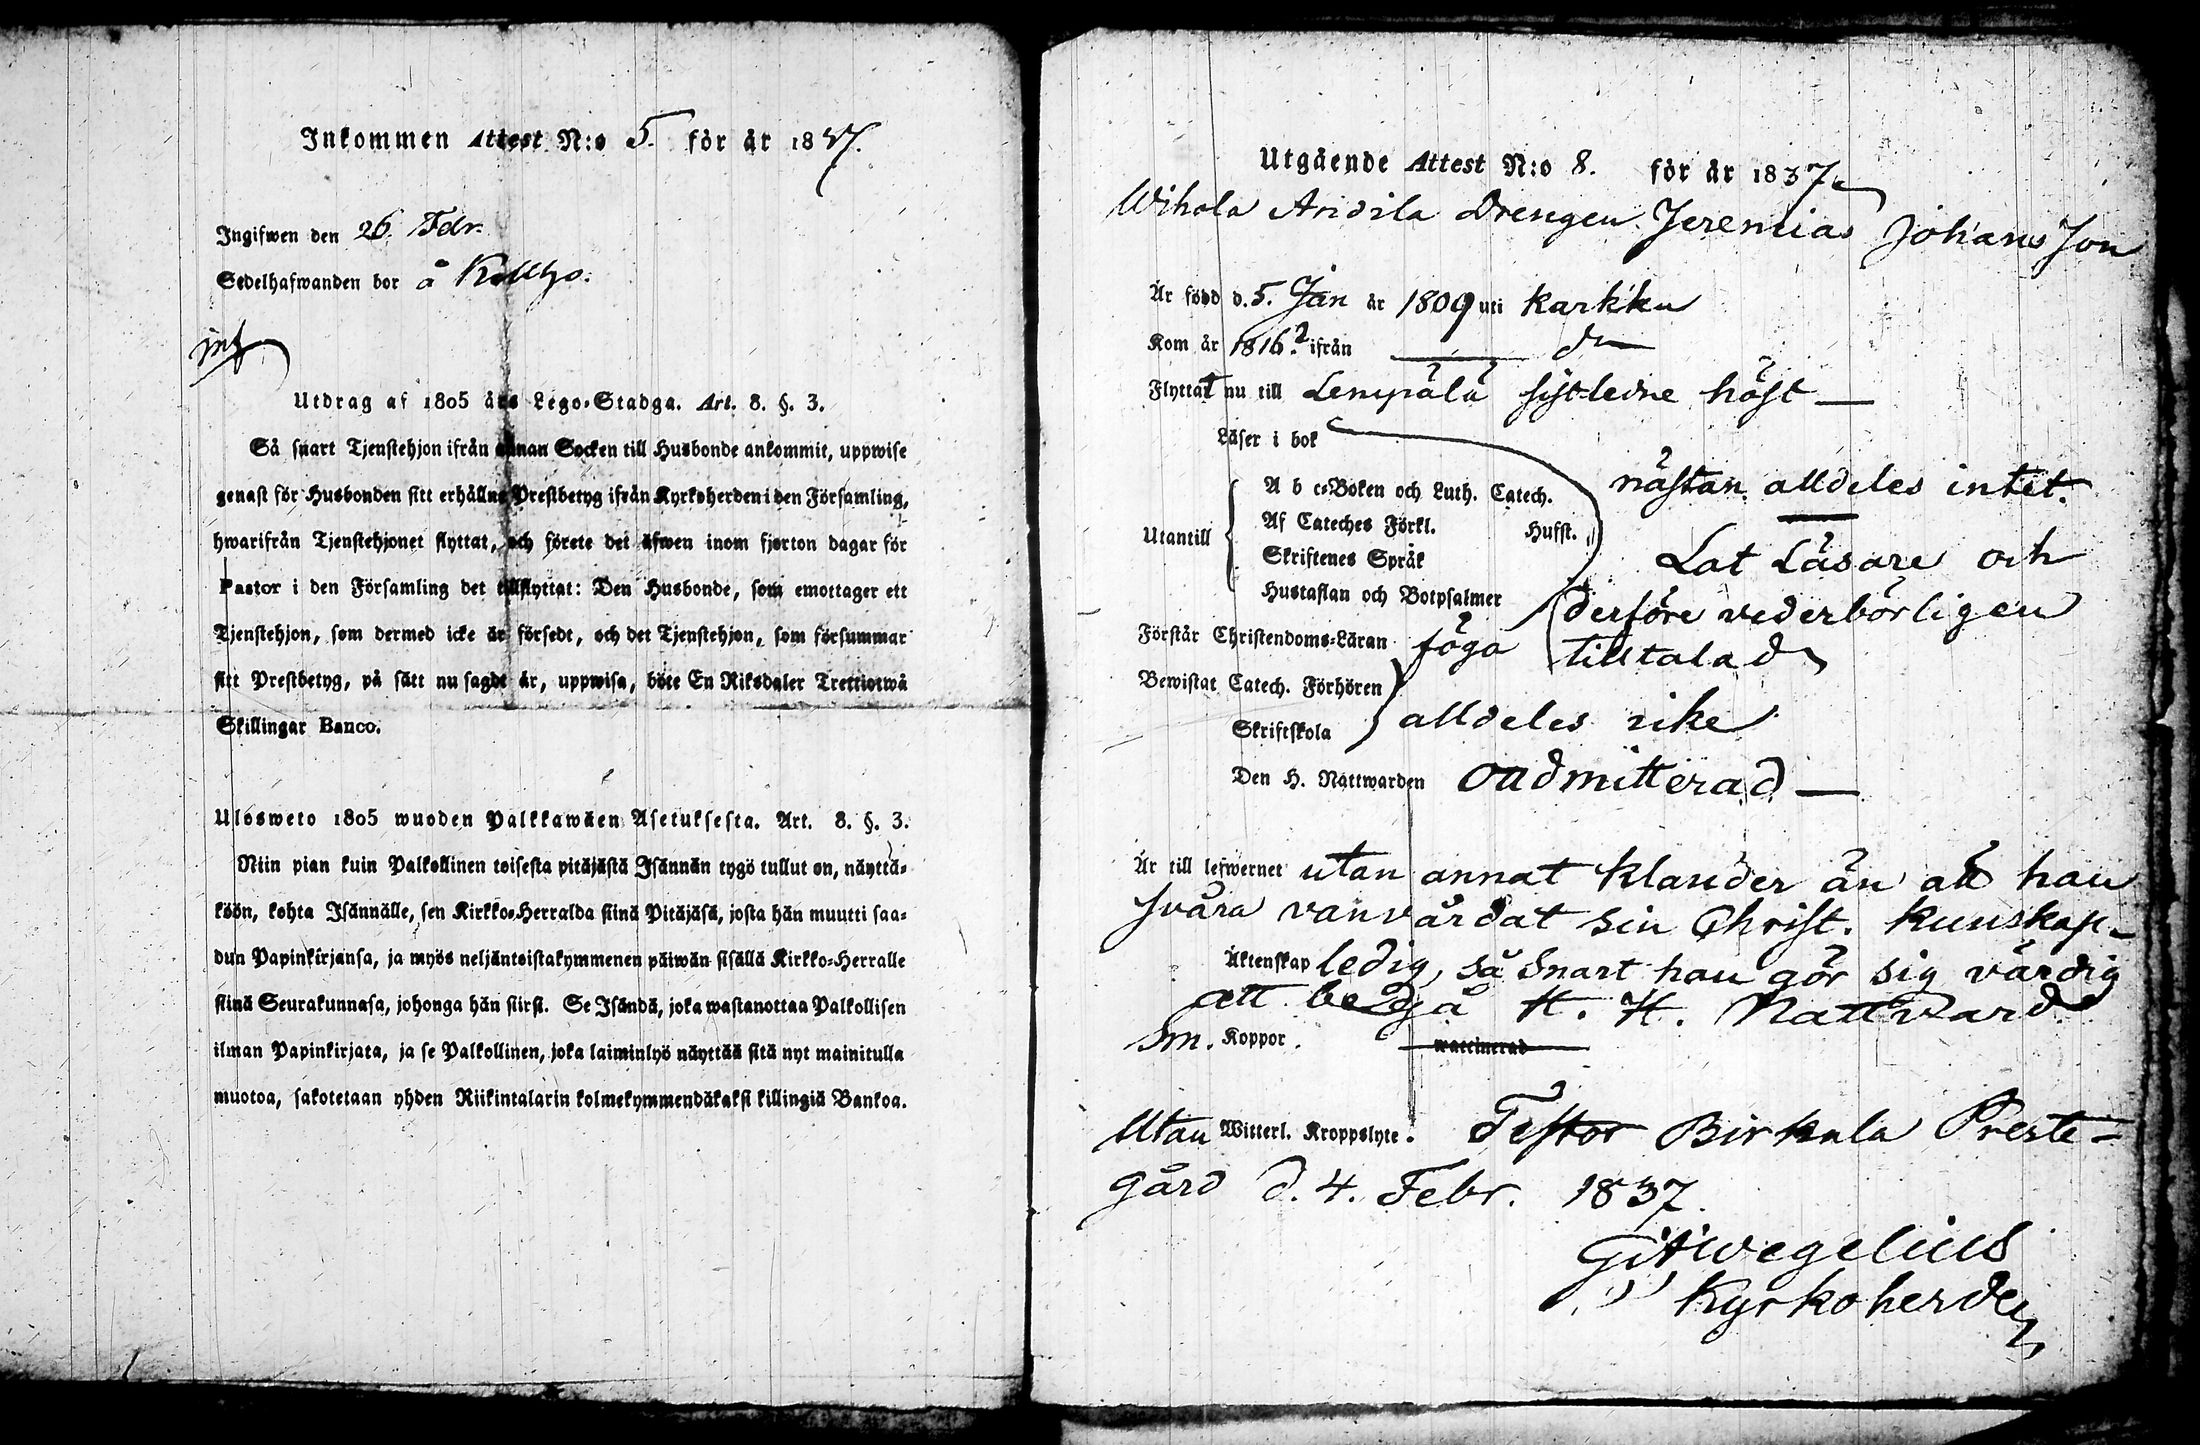 Inkommen Attest N:o 5. för år 1837.
Ingifwen den 26. Febr.
Sedelhafwanden bor å Kulju.
Utdrag af 1805 års Lego-Stadga. Art. 8. §. 3.
Så snart Tjenstehjon ifrån annan Socken till Husbonde ankommit, uppwise
genast för Husbonden sitt erhållne Prestbetyg ifrån Kyrkoherden i den Församling,
hwarifrån Tjenstehjonet flyttat, och förete det äfwen inom fjorton dagar för
Pastor i den Församling det tillflyttat: Den Husbonde, som emottager ett
Tjenstehjon, som dermed icke är försedt, och det Tjenstehjon, som försummar
sitt Prestbetyg, på sätt nu sagdt är, uppwisa, böte En Riksdaler Trettiotwå
Skillingar Banco.
Ulosweto 1805 wuoden Palkkawäen Asetuksesta. Art. 8. §. 3.
Niin pian kuin Palkollinen toisesta pitäjästä Isännän tygö tullut on, näyttä-
köön, kohta Isännälle, sen Kirkko-Herralda siinä Pitäjäsä, josta hän muutti saa-
dun Papinkirjansa, ja myös neljäntoistakymmenen päiwän sisällä Kirkko-Herralle
siinä Seurakunnasa, johonga hän siirsi. Se Isändä, joka wastanottaa Palkollisen
ilman Papinkirjata, ja se Palkollinen, joka laiminlyö näyttää sitä nyt mainitulla
muotoa, sakotetaan yhden Riikintalarin kolmekymmendäkaksi killingiä Bankoa.
Utgående Attest N:o 8. för år 1837
Wihola Anoila Drengen Jeremias Johansson
Är född d. 5. Jan år 1809 uti Karkku
Kom år 1816? ifrån — do
Flyttat nu till Lempälä sistledne höst —
Läser i bok
A b c-Boken och Luth. Catech. nästan alldeles intet.
Utantill Af Cateches Förkl. Husst.
Skriftenes Språk Lat Läsare och
Hustaflan och Botpsalmer derföre vederbörligen
Förstår Christendoms-Läran föga tilltalad
Bewistat Catech. Förhören
Skriftskola alldeles icke
Den H. Nattwarden oadmitterad —
Är till lefwernet utan annat klander än att han
svåra vanvårdat sin Christ. kunskap.
Äktenskap ledig, så snart han gör sig värdig
att begå H. H. Nattvard
Sm. Koppor. waccinerad
Utan Witterl. Kroppslyte. Testor Birkala Preste-
gård d. 4. Febr. 1837.
Wegelius
Kyrkoherde